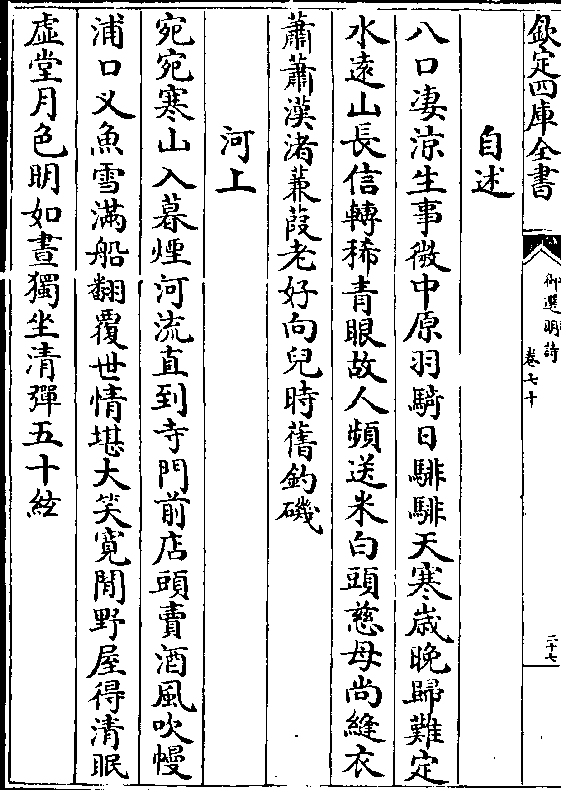 欽定四庫全書
御選明詩
卷七十
二十七
自述
八口凄涼生事微中原羽騎日騑騑天寒歲晚歸難定
水遠山長信轉稀青眼故人頻送米白頭慈母尚縫衣
蕭蕭漢渚蒹葭老好向兒時舊釣磯
河上
宛宛寒山入暮煙河流直到寺門前店頭賣酒風吹幔
浦口乂魚雪滿船翻覆世情堪大笑寛閒野屋得清眠
虛堂月色明如晝獨坐清彈五十絃